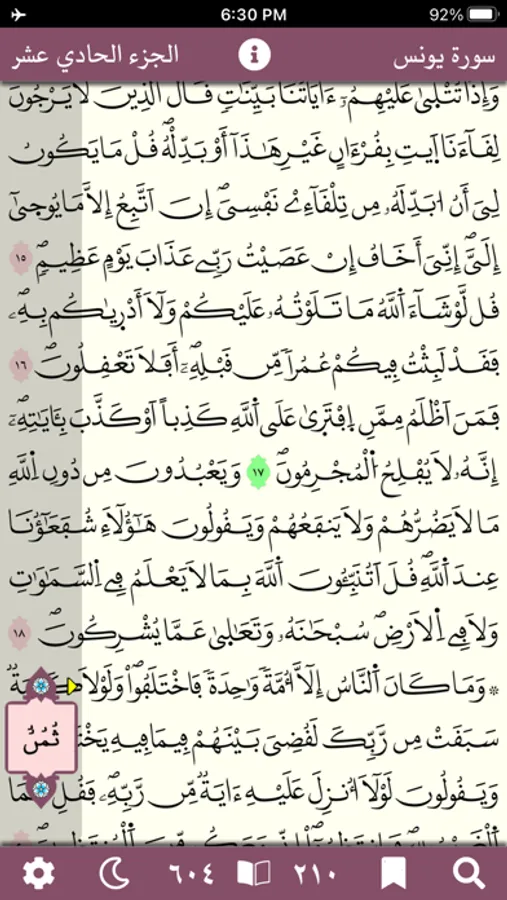 6:30 PM
92%
سورة يونس
الجزء الحادي عشر
وَإِذَا تُتْلَىٰ عَلَيْهِمُۥٓ ءَايَاتُنَا بَيِّنَٰتٖ قَالَ ٱلذِينَ لَا يَرْجُونَ
لِقَآءَنَا ٱيتِ بِقُرْءَانٍ غَيْرِ هَٰذَآ أَوْ بَدِّلْهُ قُلْ مَا يَكُونُ
لِيَ أَنُ ابَدِّلَهُۥ مِن تِلْقَآءِےْ نَفْسِيَ إِنَ اَتَّبِعُ إِلَّا مَا يُوحَىٰٓ
إِلَيَّ إِنِّيَ أَخَافُ إِنْ عَصَيْتُ رَبِّے عَذَابَ يَوْمٍ عَظِيمٖ ١٥
قُل لَّوْ شَآءَ اَ۬للَّهُ مَا تَلَوْتُهُۥ عَلَيْكُمْ وَلَآ أَدْر۪يٰكُم بِهِۦ
فَقَدْ لَبِثْتُ فِيكُمْ عُمُراٗ مِّن قَبْلِهِۦٓ أَفَلَا تَعْقِلُونَ ١٦
فَمَنَ اَظْلَمُ مِمَّنِ اِ۪فْتَر۪يٰ عَلَى اَ۬للَّهِ كَذِباً اَوْ كَذَّبَ بِـَٔايَٰتِهِۦٓ
إِنَّهُۥ لَا يُفْلِحُ اُ۬لْمُجْرِمُونَ ١٧ وَيَعْبُدُونَ مِن دُونِ اِ۬للَّهِ
مَا لَا يَضُرُّهُمْ وَلَا يَنفَعُهُمْ وَيَقُولُونَ هَٰٓؤُلَآءِ شُفَعَٰٓؤُنَا
عِندَ اَ۬للَّهِ قُلَ اَتُنَبِّـُٔونَ اَ۬للَّهَ بِمَا لَا يَعْلَمُ فِے اِ۬لسَّمَٰوَٰتِ
وَلَا فِے اِ۬لَارْضِ سُبْحَٰنَهُۥ وَتَعَٰلَىٰ عَمَّا يُشْرِكُونَ ١٨
۞ وَمَا كَانَ اَ۬لنَّاسُ إِلَّآ أُمَّةٗ وَٰحِدَةٗ فَاخْتَلَفُواْ وَلَوْلَا
سَبَقَتْ مِن رَّبِّكَ لَقُضِيَ بَيْنَهُمْ فِيمَا فِيهِ
وَيَقُولُونَ لَوْلَآ أُنزِلَ عَلَيْهِ ءَايَةٞ مِّن رَّبِّهِۦ فَقُلِ
ثُمُنٌ
٦٠٤
٢١٠